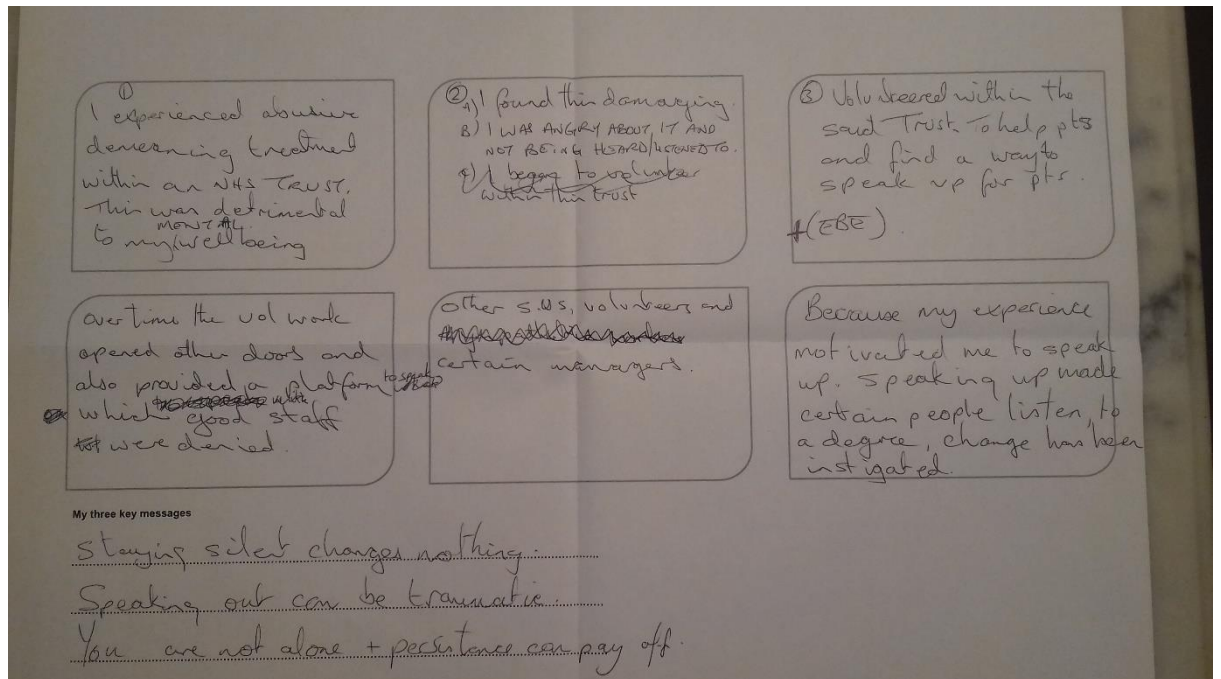 ①
I experienced abusive
demeaning treatment
within an NHS TRUST.
This was detrimental
MENTAL
to my/wellbeing
② A) I found this damaging.
B) I WAS ANGRY ABOUT IT AND
NOT BEING HEARD/LISTENED TO.
c) I began to volunteer
within this trust
③ Volunteered within the
said Trust. To help pts
and find a way to
speak up for pts.
+(EBE).
Over time the vol work
opened other doors and
also provided a platform to speak
which good staff
were denied.
Other S.US, volunteers and
certain managers.
Because my experience
motivated me to speak
up. Speaking up made
certain people listen, to
a degree, change has been
instigated.
My three key messages
Staying silent changes nothing.
Speaking out can be traumatic.
You are not alone + persistence can pay off.